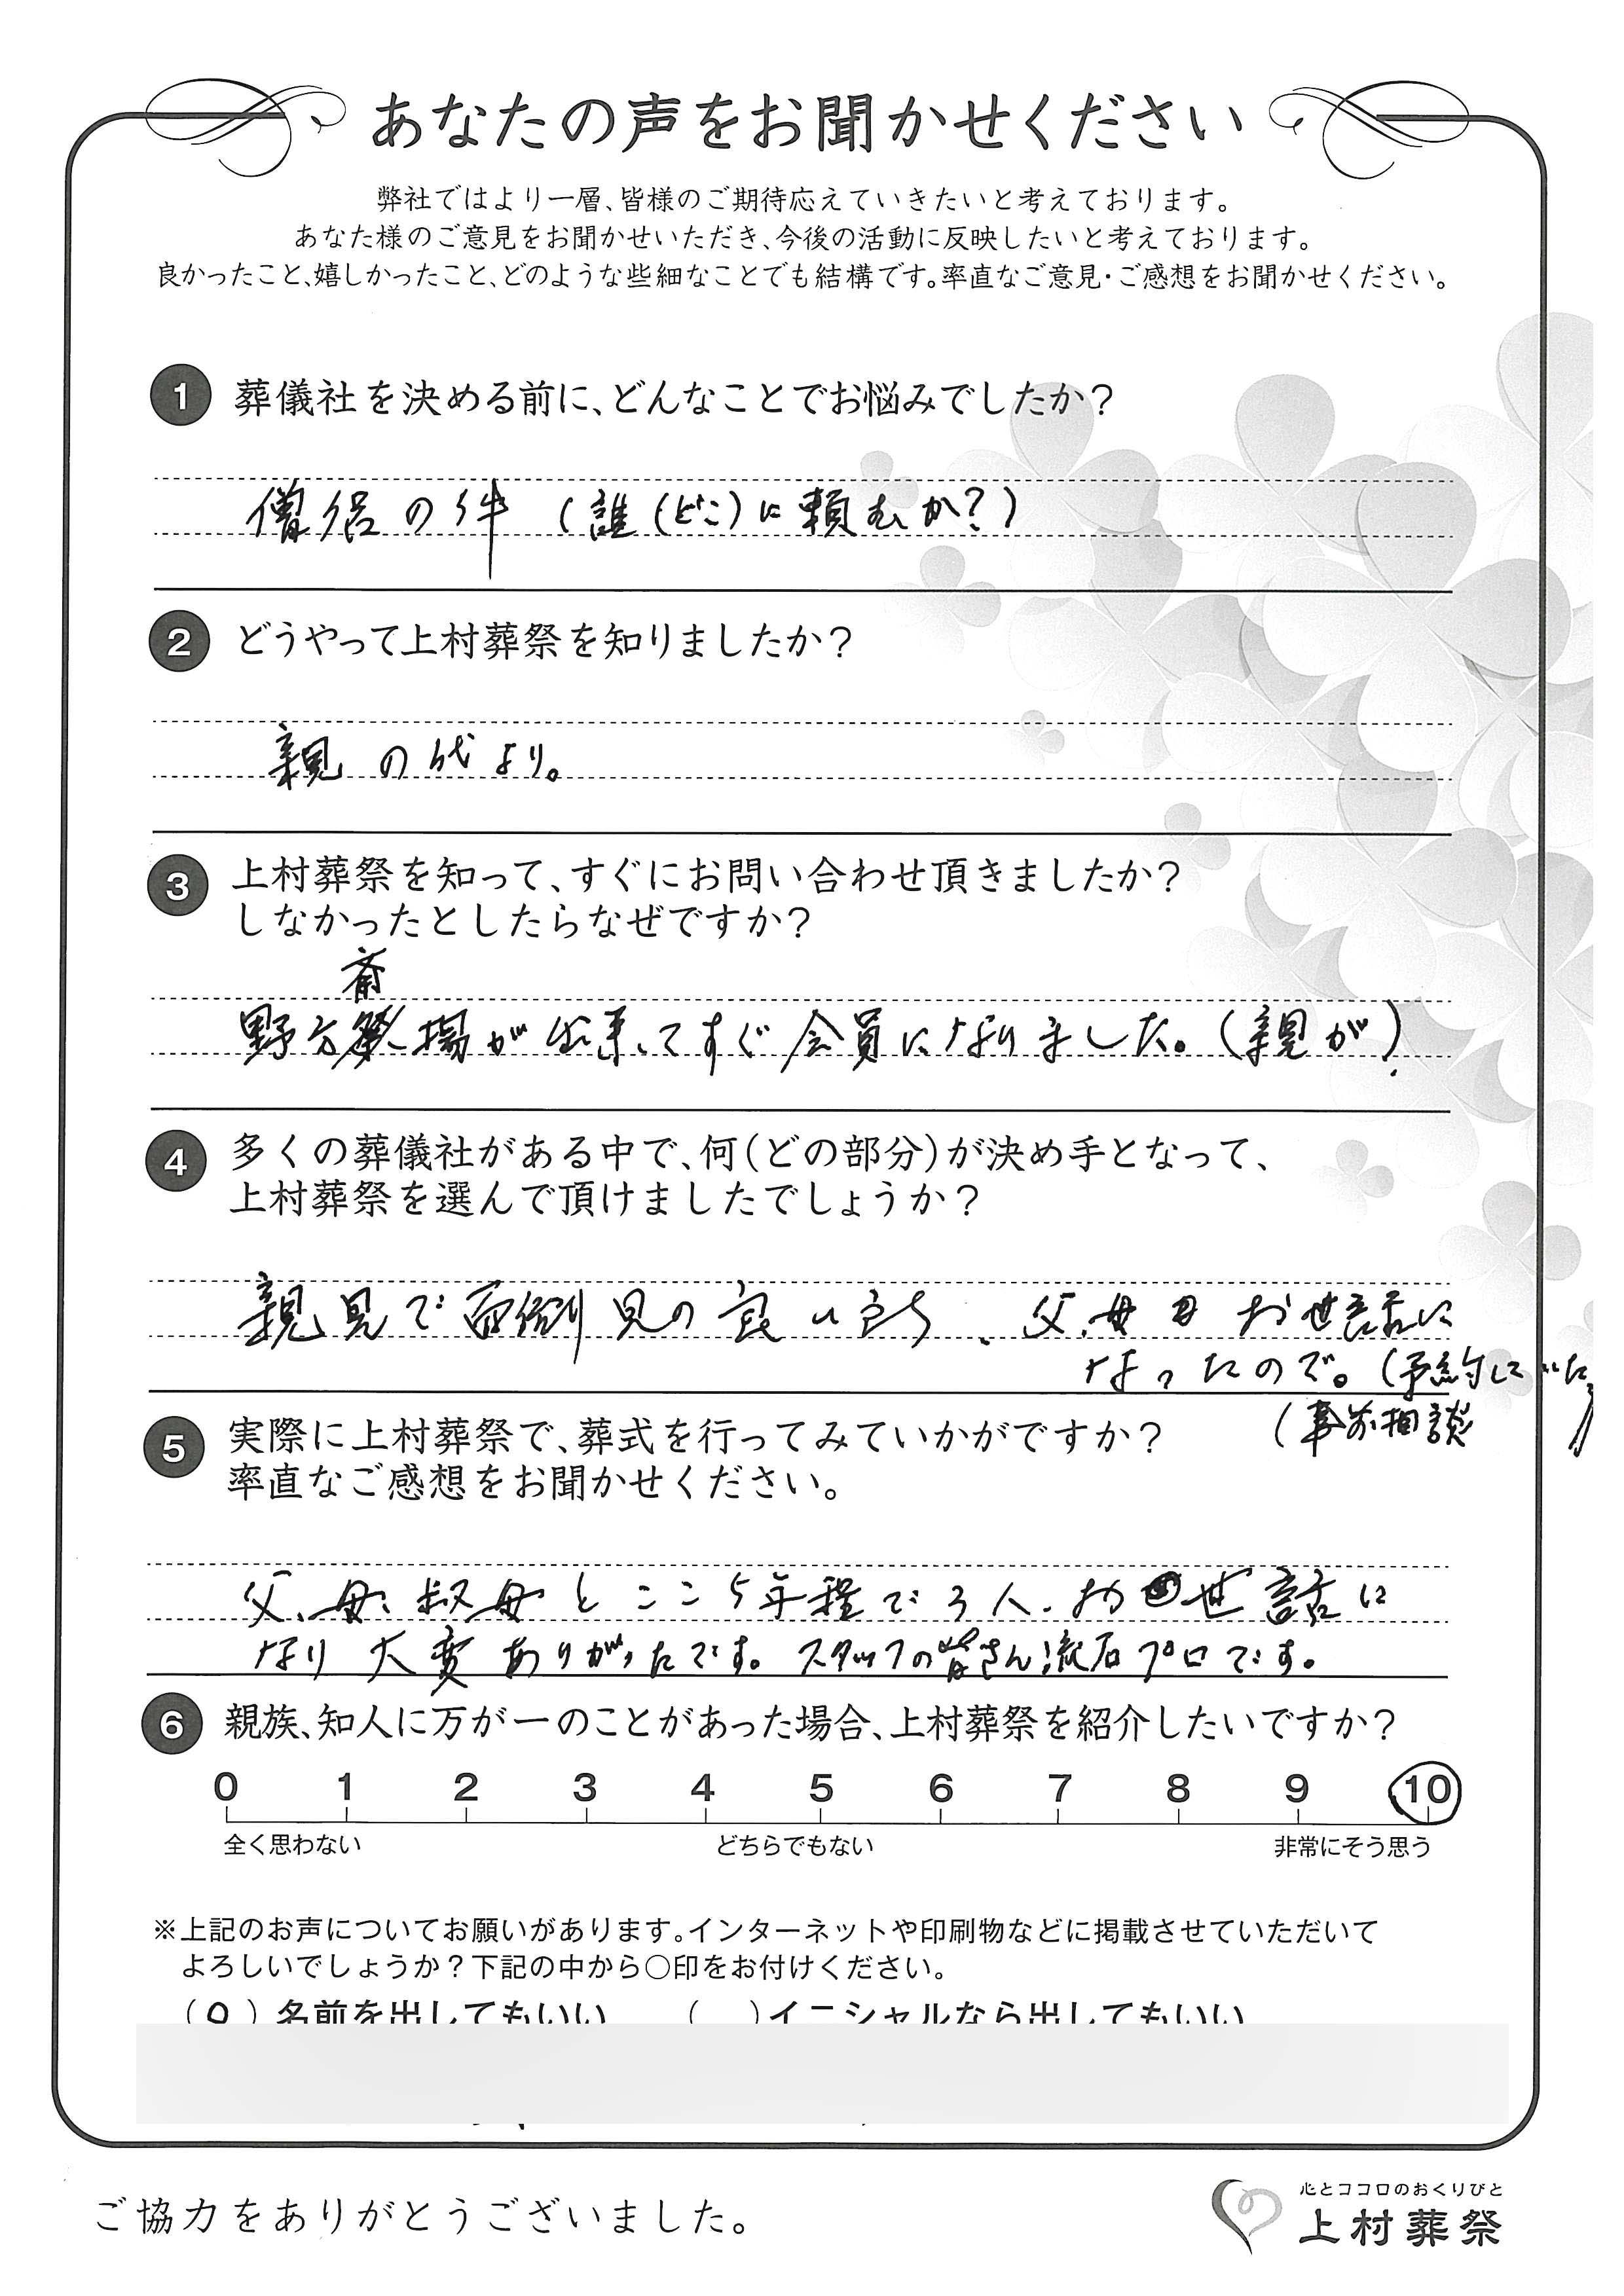 あなたの声をお聞かせください
弊社ではより一層、皆様のご期待応えていきたいと考えております。
あなた様のご意見をお聞かせいただき、今後の活動に反映したいと考えております。
良かったこと、嬉しかったこと、どのような些細なことでも結構です。率直なご意見・ご感想をお聞かせください。
1 葬儀社を決める前に、どんなことでお悩みでしたか？
僧侶の件（誰（どこ）に頼むか？）
2 どうやって上村葬祭を知りましたか？
親の代より。
3 上村葬祭を知って、すぐにお問い合わせ頂きましたか？
しなかったとしたらなぜですか？
斎
野方祭場が出来てすぐ会員になりました。（親が）
4 多くの葬儀社がある中で、何（どの部分）が決め手となって、
上村葬祭を選んで頂けましたでしょうか？
親見で面倒見の良い、父、母もお世話に
なったので。（予約していた）
（事前相談
5 実際に上村葬祭で、葬式を行ってみていかがですか？
率直なご感想をお聞かせください。
父、母、叔母とここ5年程で3人、お世話に
なり大変ありがたったです。スタッフの皆さん流石プロです。
6 親族、知人に万が一のことがあった場合、上村葬祭を紹介したいですか？
0 1 2 3 4 5 6 7 8 9 10
全く思わない どちらでもない 非常にそう思う
※上記のお声についてお願いがあります。インターネットや印刷物などに掲載させていただいて
よろしいでしょうか？下記の中から○印をお付けください。
（○）名前を出してもいい （ ）イニシャルなら出してもいい
ご協力をありがとうございました。
心とココロのおくりびと
上村葬祭